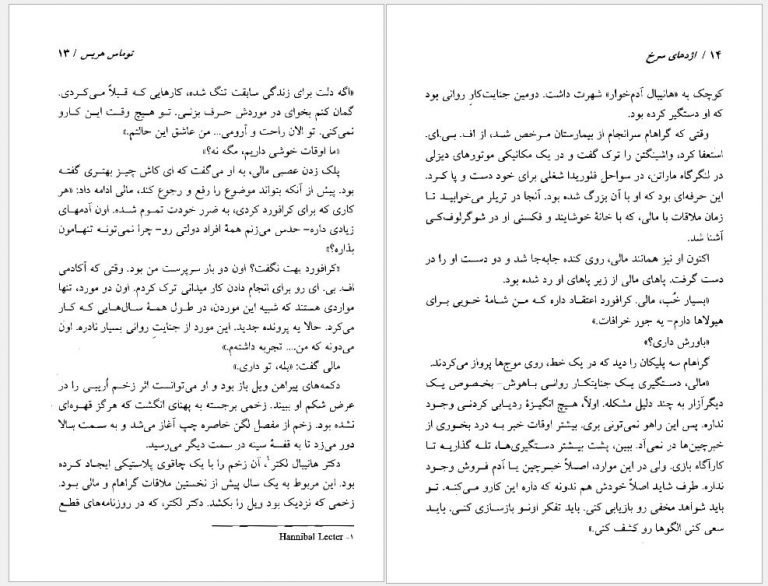 توماس هریس / ۱۳
«اگه دلت برای زندگی سابقت تنگ شده، کارهایی که قبلاً می‌کردی.
گمان کنم بخوای در موردش حرف بزنی. تو هیچ وقت این کارو
نمی‌کنی. تو الان راحت و آرومی... من عاشق این حالتم.»
«ما اوقات خوشی داریم، مگه نه؟»
پلک زدن عصبی مالی، به او می‌گفت که ای کاش چیز بهتری گفته
بود. پیش از آنکه بتواند موضوع را رفع و رجوع کند، مالی ادامه داد: «هر
کاری که برای کرافورد کردی، به ضرر خودت تموم شده. اون آدمهای
زیادی داره- حدس می‌زنم همۀ افراد دولتی رو- چرا نمی‌تونه تنهامون
بذاره؟»
«کرافورد بهت نگفت؟ اون دو بار سرپرست من بود. وقتی که آکادمی
اف. بی. ای رو برای انجام دادن کار میدانی ترک کردم. اون دو مورد، تنها
مواردی هستند که شبیه این موردن، در طول همۀ سال‌هایی که کار
می‌کرد. حالا یه پرونده جدید. این مورد از جنایتِ روانی بسیار نادره. اون
می‌دونه که من.... تجربه داشته‌م.»
مالی گفت: «بله، تو داری.»
دکمه‌های پیراهن ویل باز بود و او می‌توانست اثر زخم اُریبی را در
عرض شکم او ببیند. زخمی برجسته به پهنای انگشت که هرگز قهوه‌ای
نشده بود. زخم از مفصل لگن خاصره چپ آغاز می‌شد و به سمت بالا
دور می‌زد تا به قفسۀ سینه در سمت دیگر می‌رسید.
دکتر هانیبال لکتر۱، آن زخم را با یک چاقوی پلاستیکی ایجاد کرده
بود. این مربوط به یک سال پیش از نخستین ملاقات گراهام و مالی بود.
زخمی که نزدیک بود ویل را بکشد. دکتر لکتر، که در روزنامه‌های قطع
۱- Hannibal Lecter
۱۴ / اژدهای سرخ
کوچک به «هانیبال آدم‌خوار» شهرت داشت. دومین جنایت‌کارِ روانی بود
که او دستگیر کرده بود.
وقتی که گراهام سرانجام از بیمارستان مرخص شد، از اف. بی.ای.
استعفا کرد، واشینگتن را ترک گفت و در یک مکانیکی موتورهای دیزلی
در لنگرگاه ماراتن، در سواحل فلوریدا شغلی برای خود دست و پا کرد.
این حرفه‌ای بود که او با آن بزرگ شده بود. آنجا در تریلر می‌خوابید تا
زمان ملاقات با مالی، که با خانۀ خوشایند و فکسنی او در شوگرلوف‌کی
آشنا شد.
اکنون او نیز همانند مالی، روی کنده جابه‌جا شد و دو دست او را در
دست گرفت. پاهای مالی از زیر پاهای او رد شده بود.
«بسیار خُب، مالی. کرافورد اعتقاد داره که من شامۀ خوبی برای
هیولاها دارم- یه جور خرافات.»
«باورش داری؟»
گراهام سه پلیکان را دید که در یک خط، روی موج‌ها پرواز می‌کردند.
«مالی، دستگیری یک جنایتکار روانی باهوش- بخصوص یک
دیگرآزار به چند دلیل مشکله. اولاً، هیچ انگیزۀ ردیابی کردنی وجود
نداره. پس این راهو نمی‌تونی بری. بیشتر اوقات خبر به درد بخوری از
خبرچین‌ها در نمی‌آد. ببین، پشت بیشتر دستگیری‌ها، تله گذاریه تا
کارآگاه بازی. ولی در این موارد، اصلاً خبرچین یا آدم فروش وجود
نداره. طرف شاید اصلاً خودش هم ندونه که داره این کارو می‌کنه. تو
باید شواهد مخفی رو بازیابی کنی. باید تفکر اونو بازسازی کنی. باید
سعی کنی الگوها رو کشف کنی.»